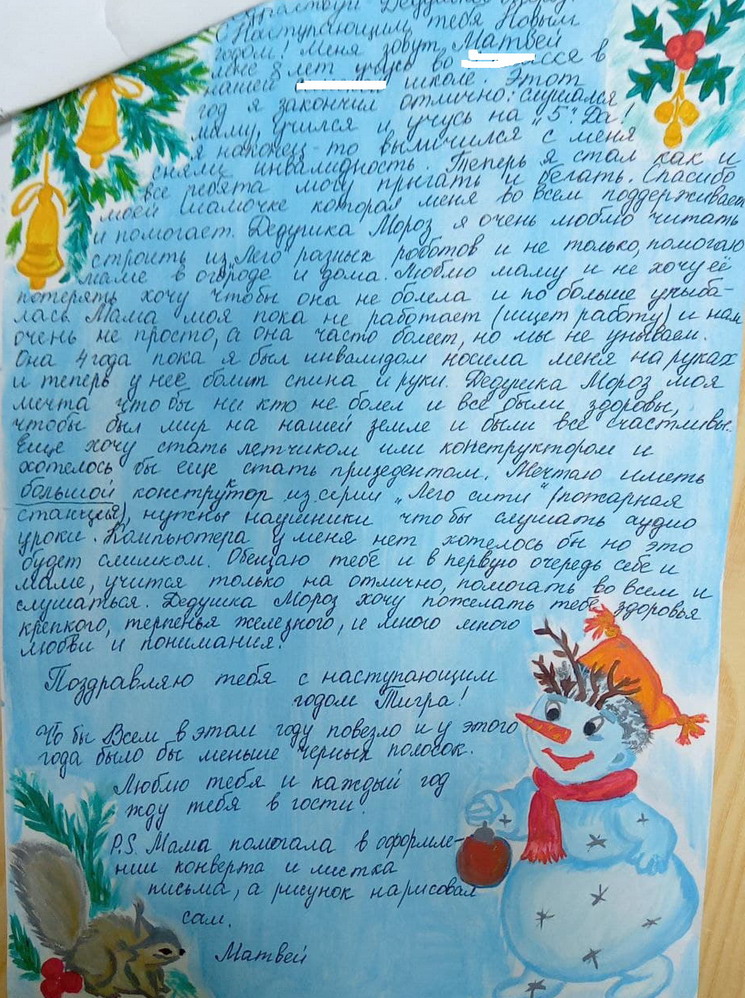 Здравствуй Дедушка Мороз!
С Наступающим тебя Новым
годом! Меня зовут Матвей
мне 8 лет учусь во в
нашей школе. Этот
год я закончил отлично: слушался
маму, учился и учусь на „5". Да!
я наконец-то вылечился с меня
сняли инвалидность. Теперь я стал как и
все ребята могу прыгать и бегать. Спасибо
моей мамочке которая меня во всем поддерживает
и помогает. Дедушка Мороз я очень люблю читать
строить из „Лего" разных роботов и не только, помогаю
маме в огороде и дома. Люблю маму и не хочу её
потерять хочу чтобы она не болела и по больше улыба-
лась. Мама моя пока не работает (ищет работу) и нам
очень не просто, а она часто болеет, но мы не унываем.
Она 4 года пока я был инвалидом носила меня на руках
и теперь у неё болит спина и руки. Дедушка Мороз моя
мечта что бы ни кто не болел и все были здоровы,
чтобы был мир на нашей земле и были все счастливы.
Еще хочу стать летчиком или конструктором и
хотелось бы еще стать призедентом. Мечтаю иметь
большой конструктор из серии „Лего сити" (пожарная
станция), нужны наушники что бы слушать аудио
уроки. Компьютера у меня нет хотелось бы но это
будет слишком. Обещаю тебе и в первую очередь себе и
маме, учится только на отлично, помогать во всем и
слушаться. Дедушка Мороз хочу пожелать тебе здоровья
крепкого, терпенья железного, и много много
любви и понимания!
Поздравляю тебя с наступающим
годом Тигра!
Что бы Всем в этом году повезло и у этого
года было бы меньше черных полосок.
Люблю тебя и каждый год
жду тебя в гости.
P.S. Мама помогала в оформле-
нии конверта и листка
письма, а рисунок нарисовал
сам.
Матвей